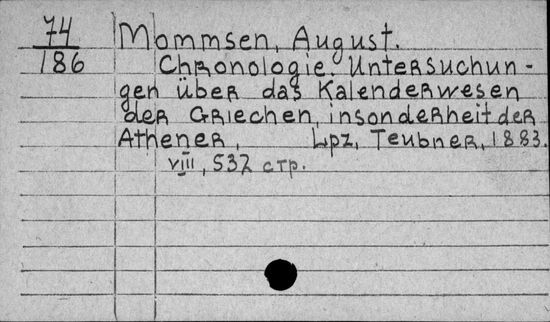 74
186
Mommsen, August.
Chronologie. Untersuchun-
gen über das Kalenderwesen
der Griechen, insonderheit der
Athener, Lpz, Teubner, 1883.
VIII, 532 стр.